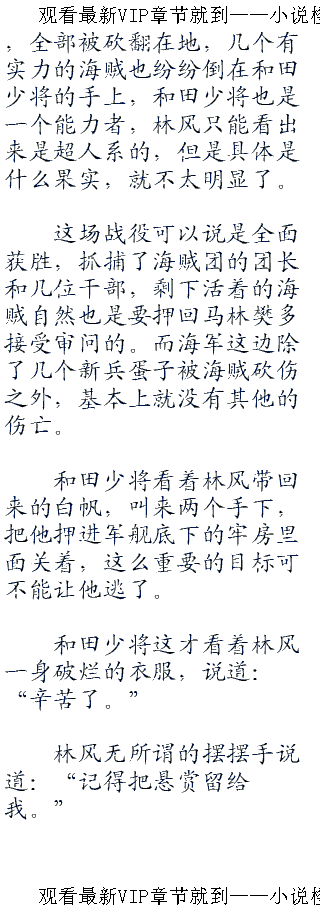 观看最新VIP章节就到——小说
，全部被砍翻在地，几个有
实力的海贼也纷纷倒在和田
少将的手上，和田少将也是
一个能力者，林风只能看出
来是超人系的，但是具体是
什么果实，就不太明显了。
这场战役可以说是全面
获胜，抓捕了海贼团的团长
和几位干部，剩下活着的海
贼自然也是要押回马林樊多
接受审问的。而海军这边除
了几个新兵蛋子被海贼砍伤
之外，基本上就没有其他的
伤亡。
和田少将看着林风带回
来的白帆，叫来两个手下，
把他押进军舰底下的牢房里
面关着，这么重要的目标可
不能让他逃了。
和田少将这才看着林风
一身破烂的衣服，说道：
“辛苦了。”
林风无所谓的摆摆手说
道：“记得把悬赏留给
我。”
观看最新VIP章节就到——小说